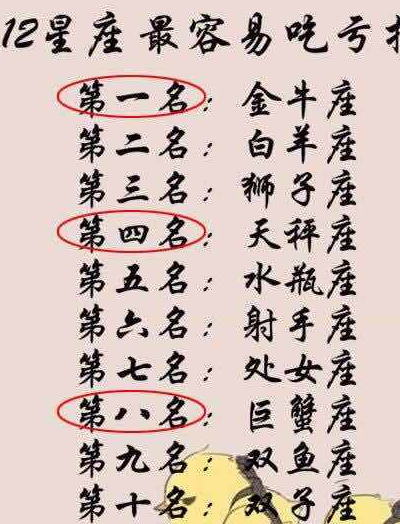 12星座最容易吃亏排
第一名：金牛座
第二名：白羊座
第三名：狮子座
第四名：天秤座
第五名：水瓶座
第六名：射手座
第七名：处女座
第八名：巨蟹座
第九名：双鱼座
第十名：双子座